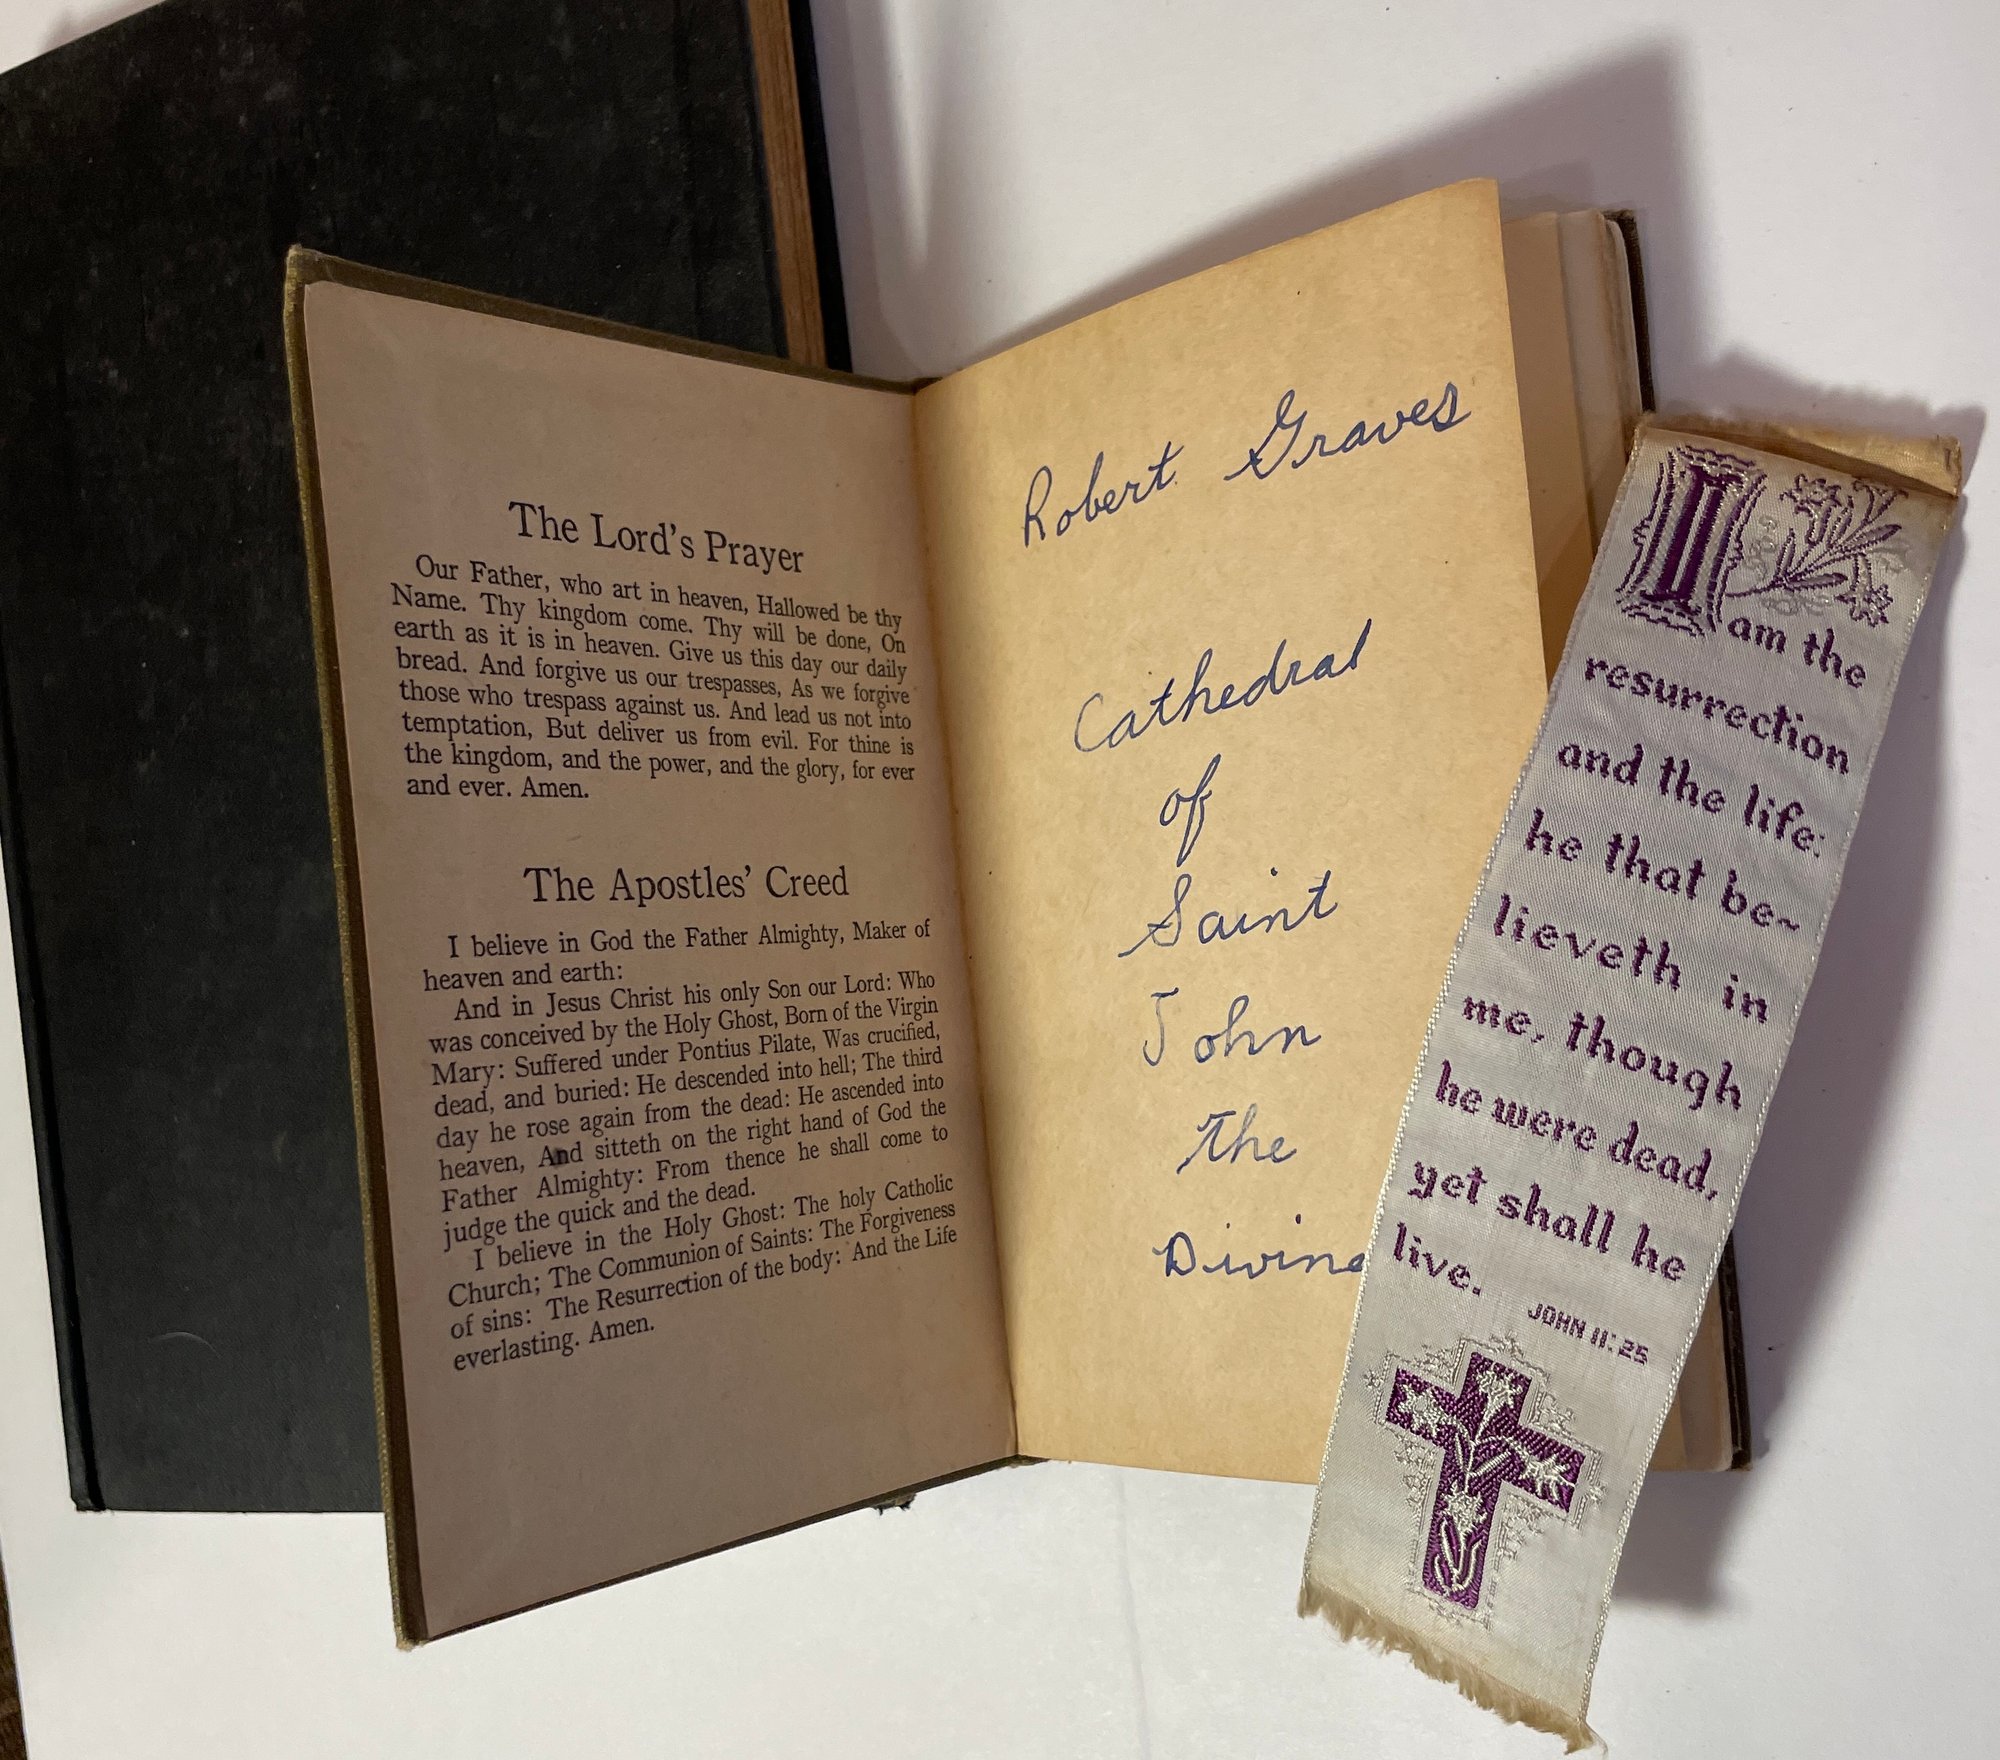 The Lord's Prayer
Our Father, who art in heaven, Hallowed be thy
Name. Thy kingdom come. Thy will be done, On
earth as it is in heaven. Give us this day our daily
bread. And forgive us our trespasses, As we forgive
those who trespass against us. And lead us not into
temptation, But deliver us from evil. For thine is
the kingdom, and the power, and the glory, for ever
and ever. Amen.
The Apostles' Creed
I believe in God the Father Almighty, Maker of
heaven and earth:
And in Jesus Christ his only Son our Lord: Who
was conceived by the Holy Ghost, Born of the Virgin
Mary: Suffered under Pontius Pilate, Was crucified,
dead, and buried: He descended into hell; The third
day he rose again from the dead: He ascended into
heaven, And sitteth on the right hand of God the
Father Almighty: From thence he shall come to
judge the quick and the dead.
I believe in the Holy Ghost: The holy Catholic
Church; The Communion of Saints: The Forgiveness
of sins: The Resurrection of the body: And the Life
everlasting. Amen.
Robert Graves
Cathedral
of
Saint
John
the
Divine
I am the
resurrection
and the life:
he that be~
lieveth in
me, though
he were dead,
yet shall he
live.
JOHN 11:25